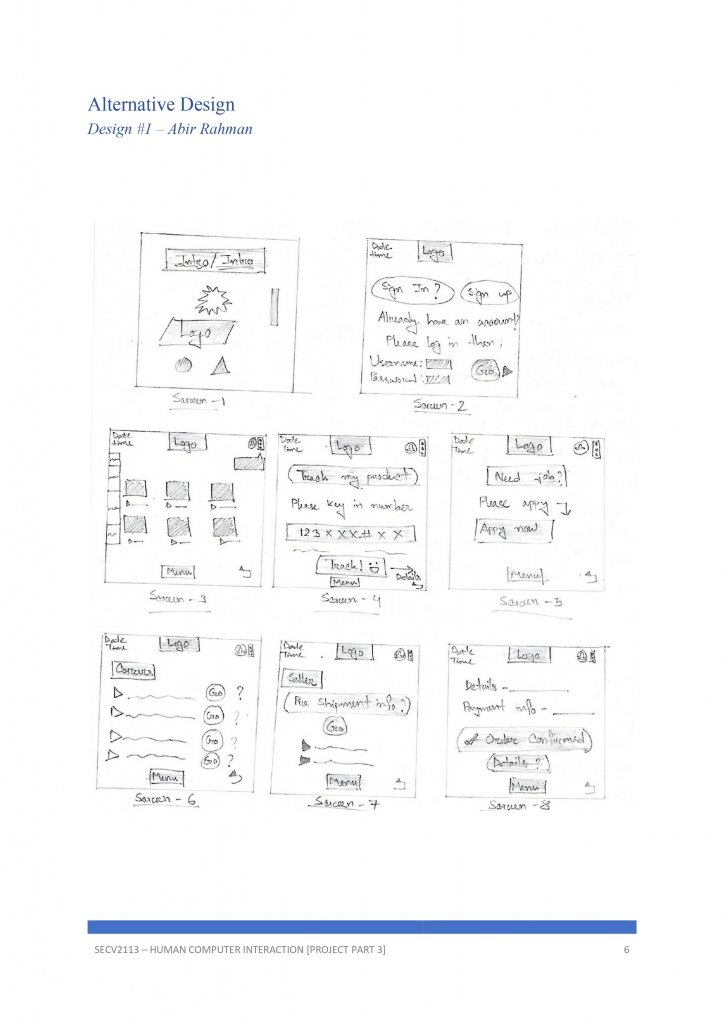 Alternative Design
Design #1 – Abir Rahman
Intro/Intro
Logo
Screen - 1
Date
time
Logo
Sign In?
Sign up
Already have an account?
Please log in then;
Username:
Password:
Go
Screen - 2
Date
time
Logo
Menu
Screen - 3
Date
Time
Logo
Track my product
Please key in number
123XXX##XX
Track!
Details
Menu
Screen - 4
Date
Time
Logo
Need job?
Please apply
Appy now
Menu
Screen - 5
Date
Time
Logo
Go ?
Go ?
Go ?
Go ?
Menu
Screen - 6
Date
Time
Logo
Seller
Pre Shipment info?
Go
Menu
Screen - 7
Date
Time
Logo
Details -
Payment info -
Order Confirmed
(Details?)
Menu
Screen - 8
SECV2113 – HUMAN COMPUTER INTERACTION [PROJECT PART 3]
6